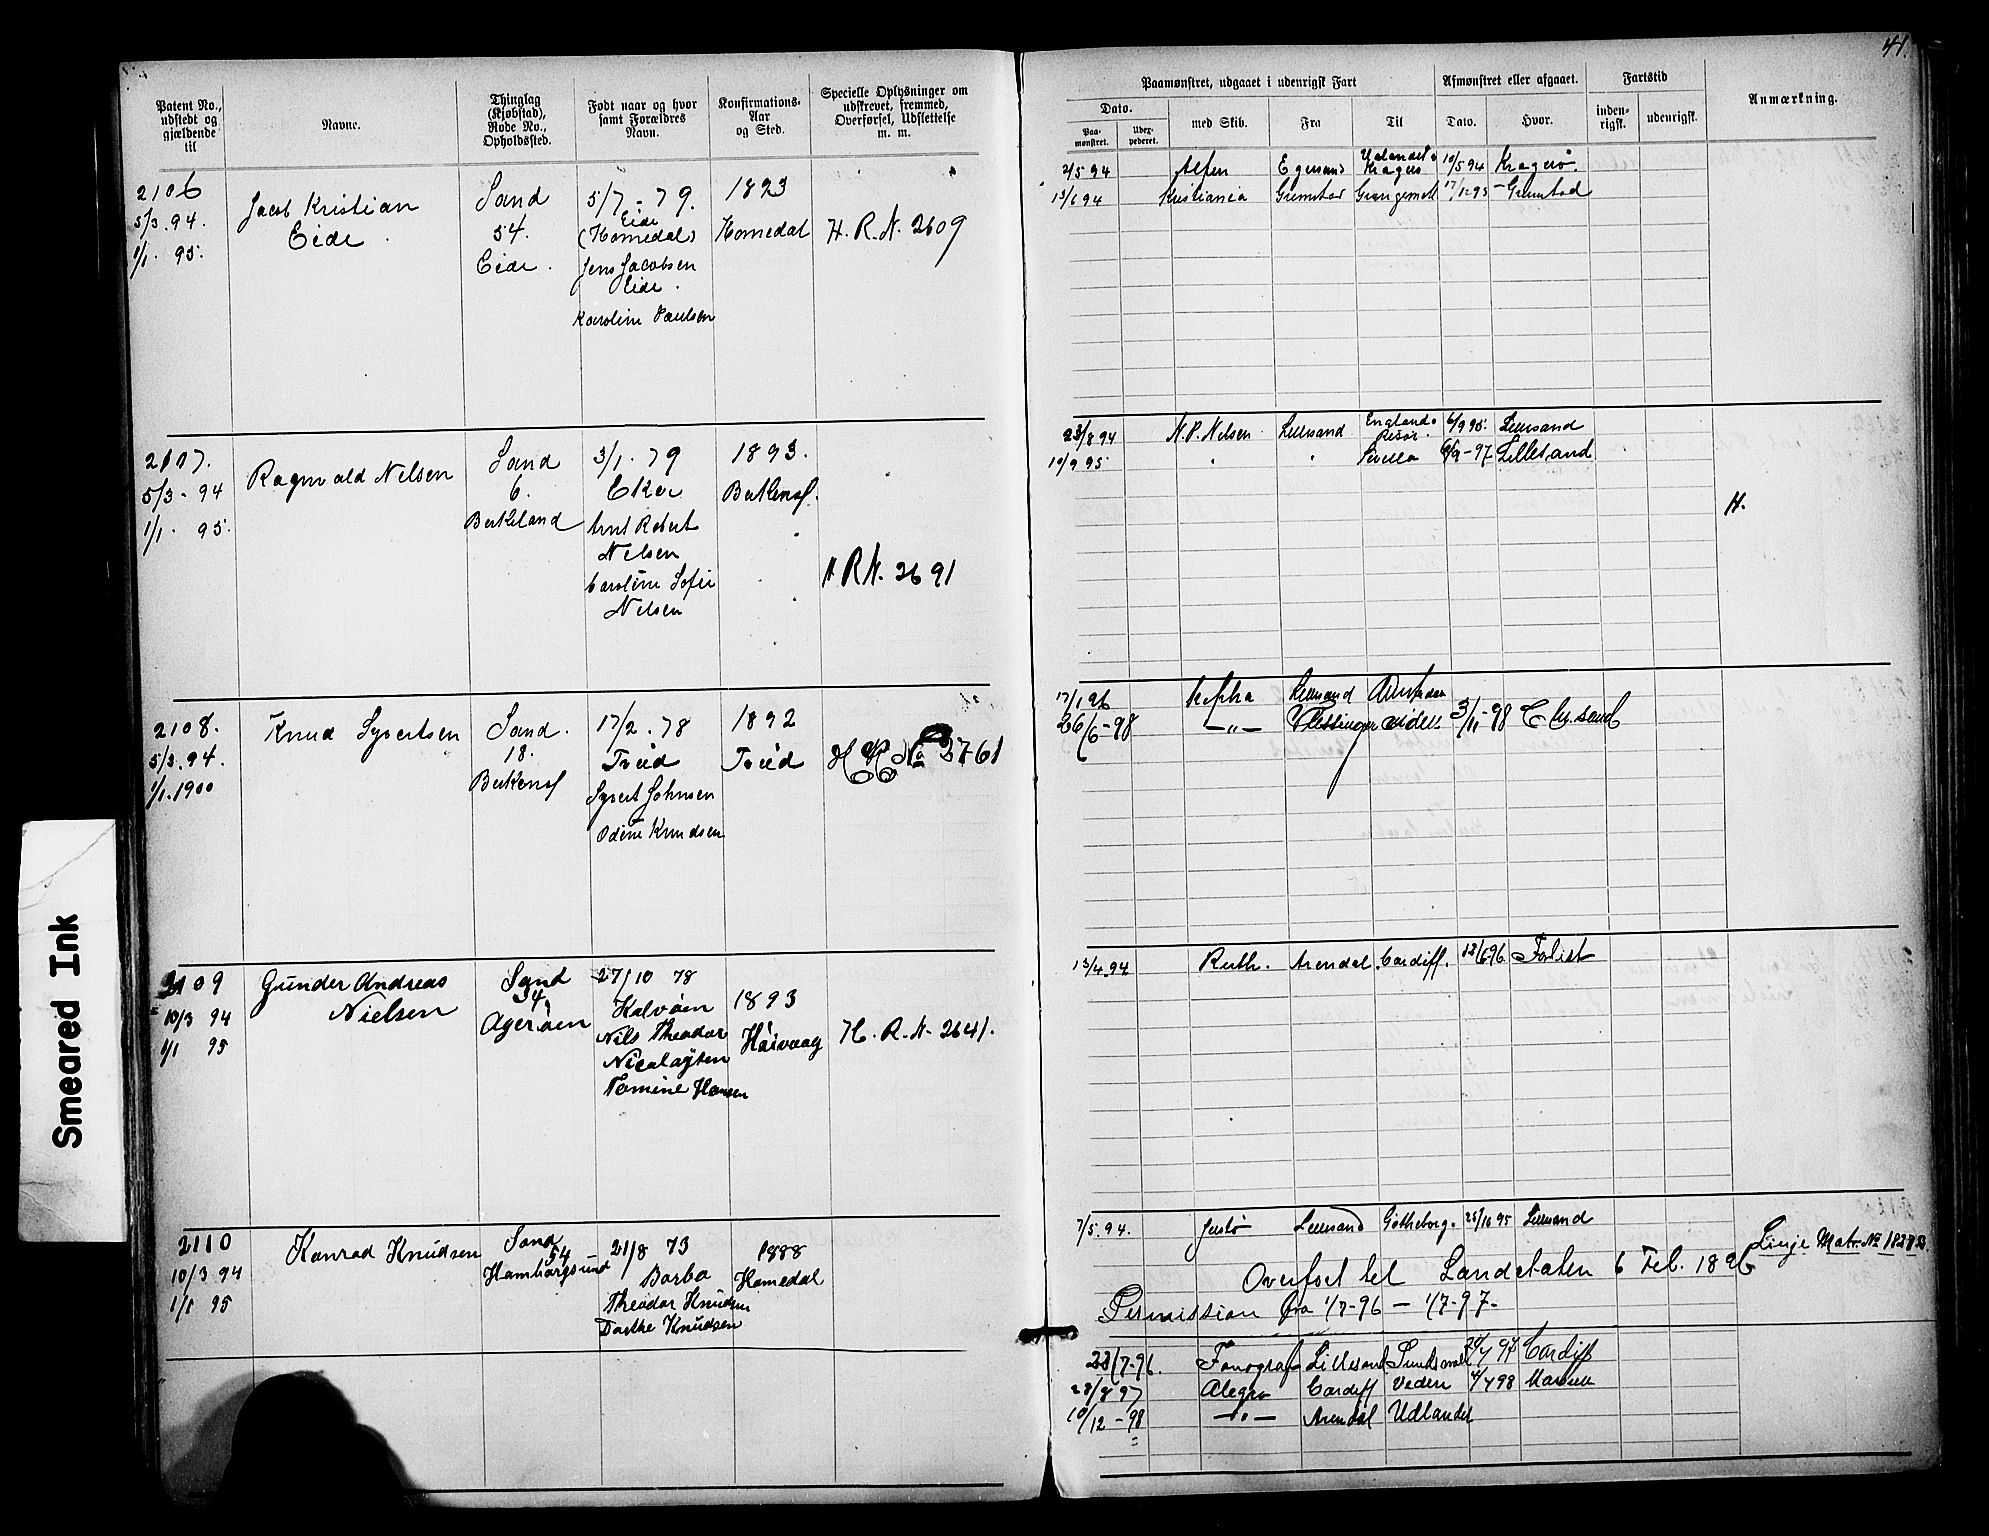 41.
Patent No., udstedt og gjældende til
Navne.
Thinglag (Kjøbstad), Rode No., Opholdssted.
Født naar og hvor samt Forældres Navn.
Konfirmations-Aar og Sted.
Specielle Oplysninger om udskrevet, fremmed, Overførsel, Udslettelse m. m.
Paamønstret, udgaaet i udenrigsk Fart
Afmønstret eller afgaaet.
Fartstid
Anmærkning.
Dato.
Paamønstret.
Udexpederet.
med Skib.
Fra
Til
Dato.
Hvor.
indenrigsk.
udenrigsk.
2106
5/3. 94.
1/1. 95.
Jacob Kristian
Eide
Sand
54.
Eide.
5/7 - 79.
Eide
(Homedal)
Jens Jacobsen
Eide.
Karoline Paulsen
1893
Homedal
H. R. N. 2609
2/5 94 Alfen Egersund Udlandet Kragerø 10/5 94 Kragerø.
13/6 94 Kristiania Grimstad Grangemouth 17/12 95 Grimstad
2107.
5/3 - 94
1/1. 95.
Ragnvald Nelsen
Sand
6.
Berkeland
3/1. 79
Eker
Arnt Robert
Nelsen
Caroline Sofie
Nelsen
1893.
Birkenes.
H R N. 2691
23/8 94 N. P. Nelsen Lillesand England Risør 6/9 95. Lillesand
10/9 95 " " 97 Lillesand
H.
2108.
5/3. 94.
1/1. 1900
Knud Syvertsen
Sand.
18.
Birkenes
17/2. 78
Treid
Syvert Johnsen
Odine Knudsen
1892
Treid
H R No 2761
17/1 96 Kephra Lillesand Amsterdam
26/6-98 —"— Vlissingen viden 3/11-98 Chr.sand
2109
10/3 94
1/1 95
Gunder Andreas
Nielsen
Sand
54
Agerøen
27/10 78
Kalvøen
Nils Theodor
Nicolaysen
Tomine Hansen
1893
Høivaag
H. R. N. 2641.
13/4 94 Ruth. Arendal. Cardiff. 13/6 96 Forlist
2110
10/3 94
1/1 95
Konrad Knudsen
Sand
54
Hamborgsund
21/8 73
Barbo
Theodor Knudsen
Dorthe Knudsen
1888
Homedal
7/5. 94. Justø Lillesand Gøtheborg. 25/10 95 Lillesand
Linje Matr. No
Overført til Landetaten 6 Feb. 1896
Permission fra 1/7-96 — 1/7-97-
23/7-96. Fonograf Lillesand Sundsvall 20/7 97 Cardiff
28/8 97 Alegro Cardiff viden 4/4 98
10/12-98 —"— Arendal Udlandet
Smeared Ink